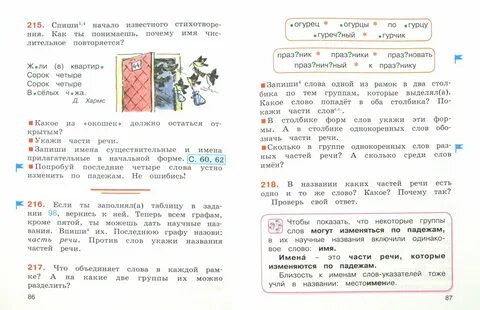 215. Спиши³,⁴ начало известного стихотворе-
ния. Как ты понимаешь, почему имя чис-
лительное повторяется?
Ж●ли (в) квартир●
Сорок четыре
Сорок четыре
В●сёлых ч●жа.
Д. Хармс
44
■ Какое из «окошек» должно остаться от-
крытым?
■ Укажи части речи.
■ Запиши имена существительные и имена
прилагательные в начальной форме. С. 60, 62
■ Попробуй последние четыре слова устно
изменить по падежам. Не ошибись!
216. Если ты заполнял(а) таблицу в зада-
нии 96, вернись к ней. Теперь всем графам,
кроме пятой, ты можешь дать научные наз-
вания. Впиши⁴ их. Последнюю графу назови:
часть речи. Против слов укажи названия
частей речи.
217. Что объединяет слова в каждой рам-
ке? А на какие две группы их можно
разделить?
86
●огурец ● огурцы по ● гурцу
гуреч?ный ● гурчик
праз?ник праз?ники праз?новать
праз?нич?ный к праз?нику
■ Запиши⁴ слова одной из рамок в два столби-
ка по тем группам, которые выделял(а).
Какое слово попадёт в оба столбика? По-
кажи части слов
■ В столбике форм слов укажи эти фор-
мы. А в столбике однокоренных слов обо-
значь части речи.
■ Сколько в группе однокоренных слов раз-
ных частей речи? А сколько среди слов
имён?
218. В названии каких частей речи есть
одно и то же слово? Какое? Почему так?
Проверь свой ответ.
Чтобы показать, что некоторые группы
слов могут изменяться по падежам,
в их научные названия включили одинако-
вое слово: имя.
Имена́ – это части речи, которые
изменяются по падежам.
Близость к именам слов-указателей тоже
учли́ в названии: местоимение.
87